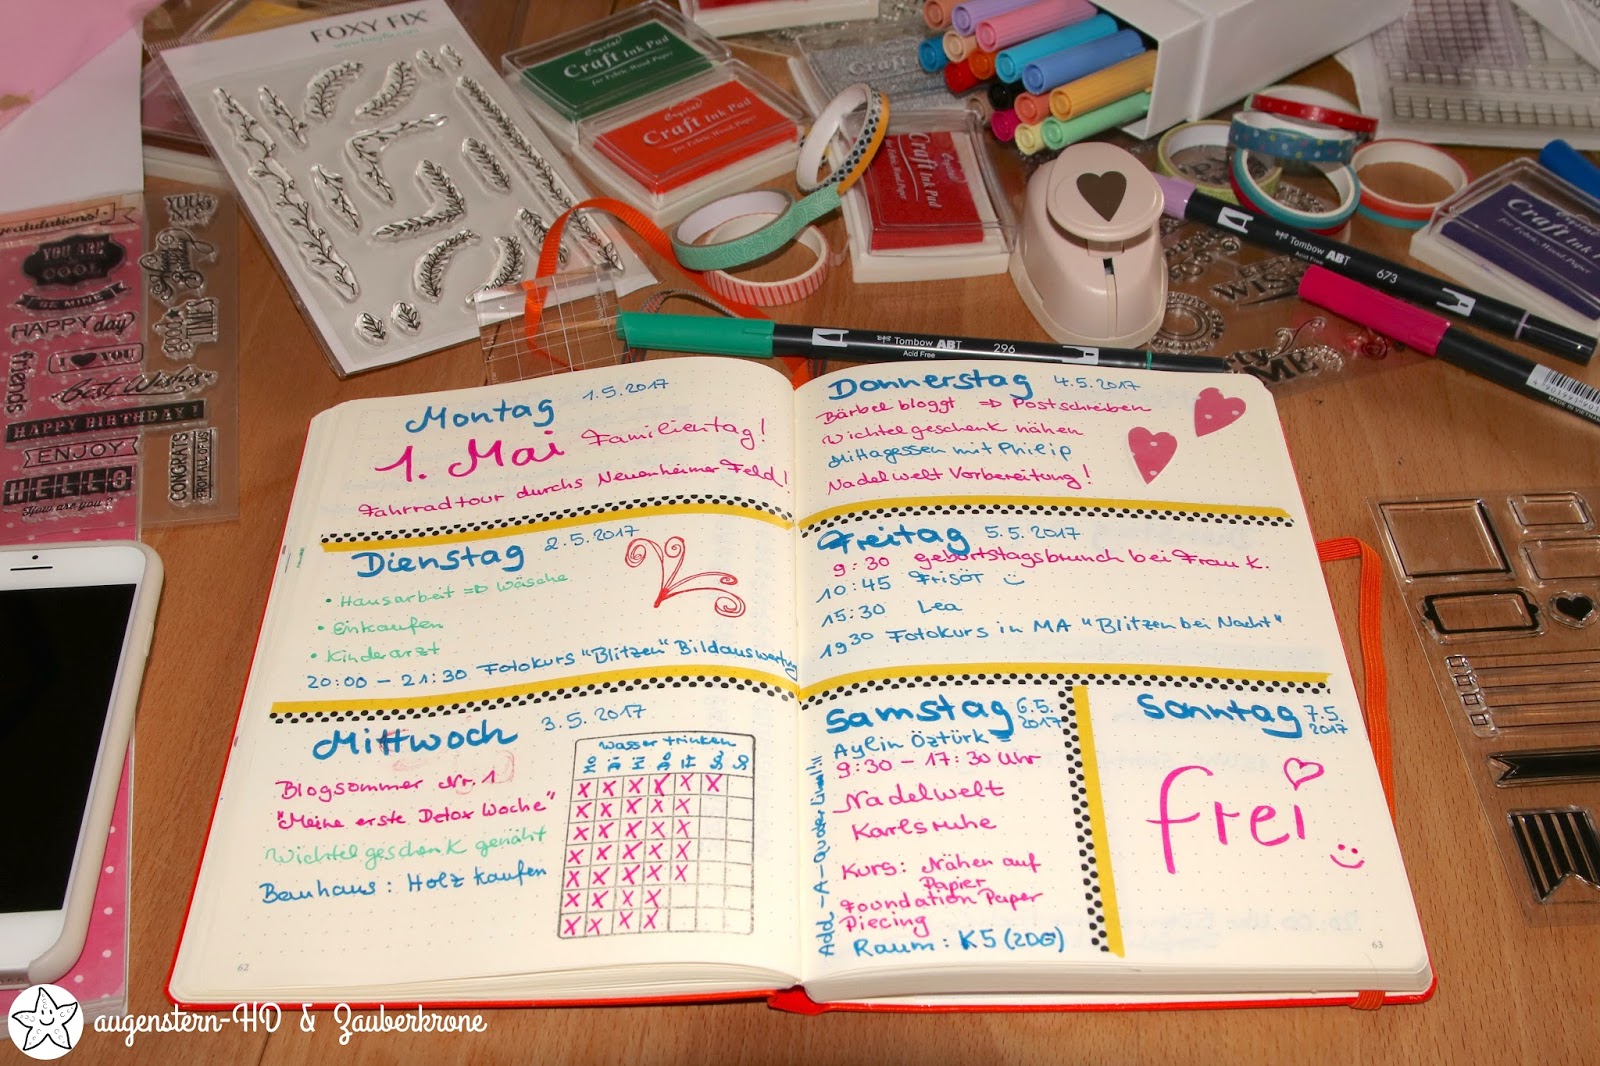 FOXY FIX
Crystal
Craft Ink Pad
for Fabric, Wood, Paper
Crystal
Craft Ink Pad
for Fabric, Wood, Paper
Craft Ink Pad
Craft Ink Pad
Craft
YOU ARE
COOL
BE MINE
HAPPY day
I YOU
friends
Best Wishes
HAPPY BIRTHDAY!
ENJOY
HELLO
How are you?
GOOD
TIMES
CONGRATS
FROM ALL OF US
Tombow ABT
Acid Free
296
Tombow ABT
Acid Free
673
Montag 1.5.2017
1. Mai Familientag!
Fahrradtour durchs Neuenheimer Feld!
Dienstag 2.5.2017
• Hausarbeit => Wäsche
• Einkaufen
• Kinderarzt
20:00 - 21:30 Fotokurs "Blitzen" Bildauswertung
Mittwoch 3.5.2017
Blogsommer Nr. 1
"Meine erste Detox Woche"
Wichtelgeschenk genäht
Bauhaus: Holz kaufen
Wasser trinken
Mo Di Mi Do Fr Sa So
X X X X X X
X X X X X
X X X X X
X X X X X
X X X X X
X X X X
X X X X
62
Donnerstag 4.5.2017
Bärbel bloggt => Postschreiben
Wichtelgeschenk nähen
Mittagessen mit Philip
Nadelwelt Vorbereitung!
Freitag 5.5.2017
9:30 geburtstagsbrunch bei Frau K.
10:45 Frisör
15:30 Lea
1930 Fotokurs in MA "Blitzen bei Nacht"
Samstag 6.5.
2017
Aylin Öztürk =
Add-A-Quarter Lineal!!
9:30 - 17:30 Uhr
Nadelwelt
Karlsruhe
Kurs: Nähen auf
Papier
Foundation Paper
Piecing
Raum: K5 (2OG)
Sonntag 7.5.
2017
frei
63
augenstern-HD & Zauberkrone